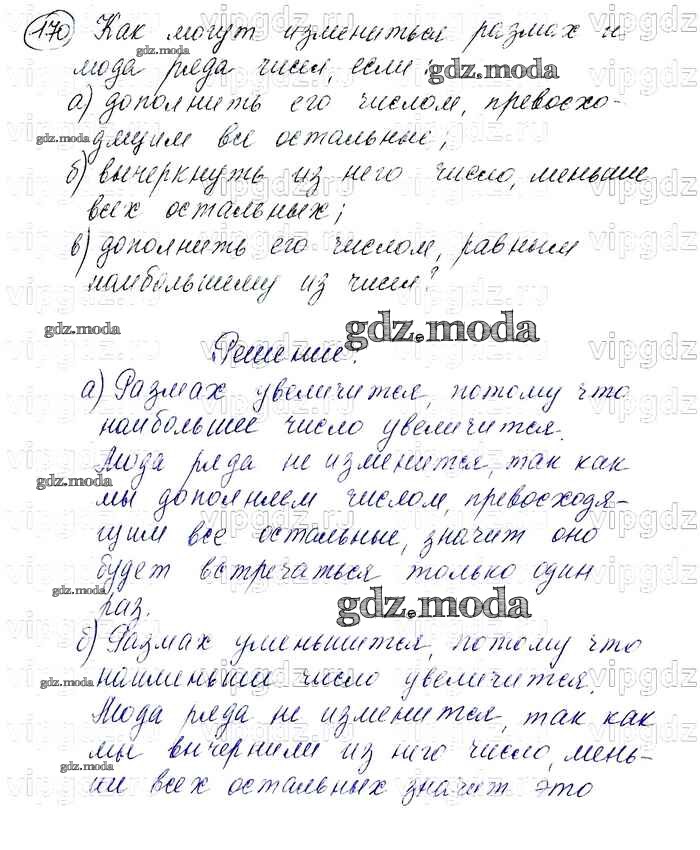 170 Как могут измениться размах и
мода ряда чисел, если:
а) дополнить его числом, превосхо-
дящим все остальные;
б) вычеркнуть из него число, меньше
всех остальных;
в) дополнить его числом, равным
наибольшему из чисел?
Решение:
а) Размах увеличится, потому что
наибольшее число увеличится.
Мода ряда не изменится, так как
мы дополняем числом, превосходя-
щим все остальные, значит оно
будет встречаться только один
раз.
б) Размах уменьшится, потому что
наименьше число увеличится.
Мода ряда не изменится, так как
мы вычернили из него число, мень-
ши всех остальных значит это
gdz.moda
vipgdz.ru